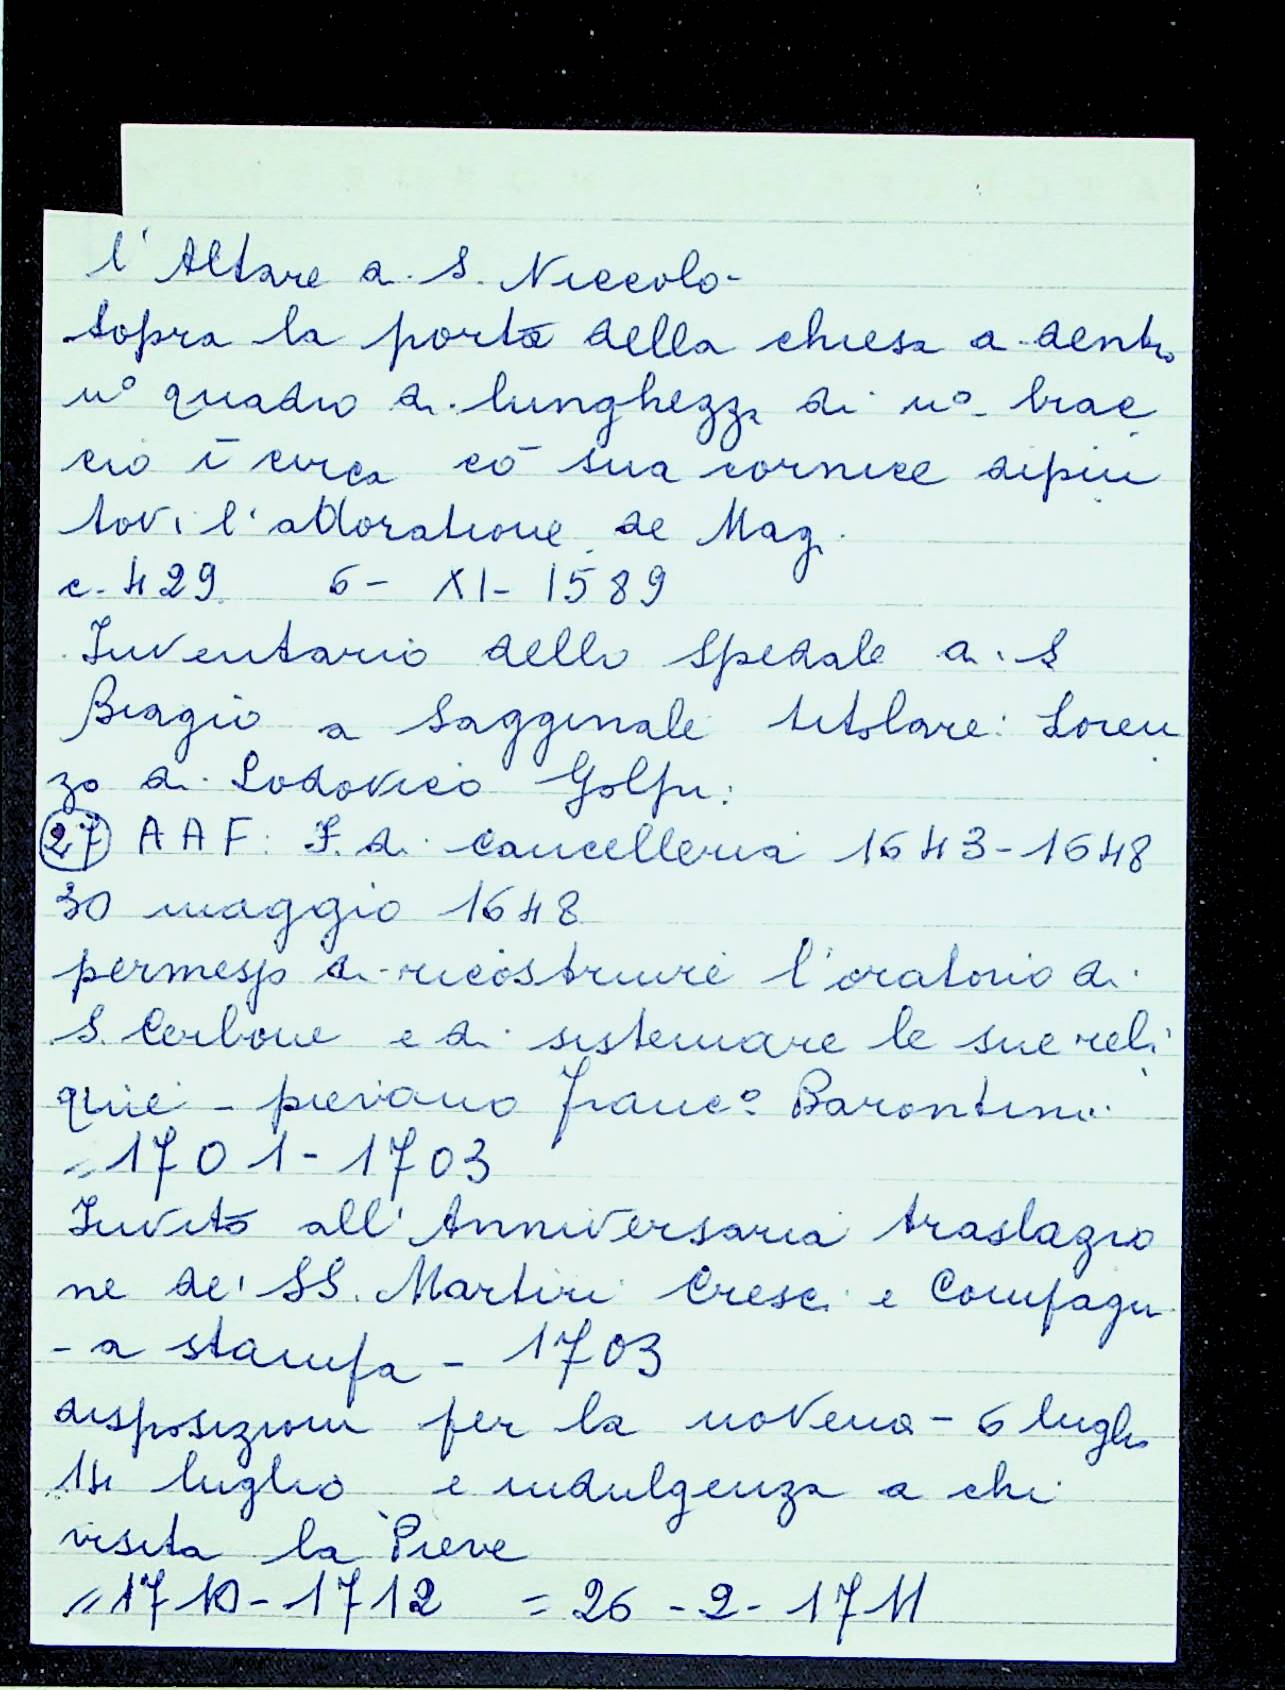 l'Altare di S. Niccolo-
sopra la porta della chiesa di dentro
uº quadro di lunghezza di uº brac
cio ī circa cō sua cornice dipin
tovi l'adoratione de Mag.
c. 429 6- XI- 1589
Inventario dello Spedale di S
Biagio a Sagginale titolare: Loren
zo di Lodovico
27 AAF: F. di cancelleria 1643-1648
30 maggio 1648
permesso di ricostruire l'oratorio di
S. Cerbone e di sistemare le sue reli
quie - pievano Francº Barontini
" 1701-1703
Invito all'Anniversaria traslazio
ne de' SS. Martiri Cresci e Compagni
- a stampa - 1703
disposizioni per la novena - 6 luglio
14 luglio e indulgenza a chi
visita la Pieve
" 1710-1712 = 26-2-1711